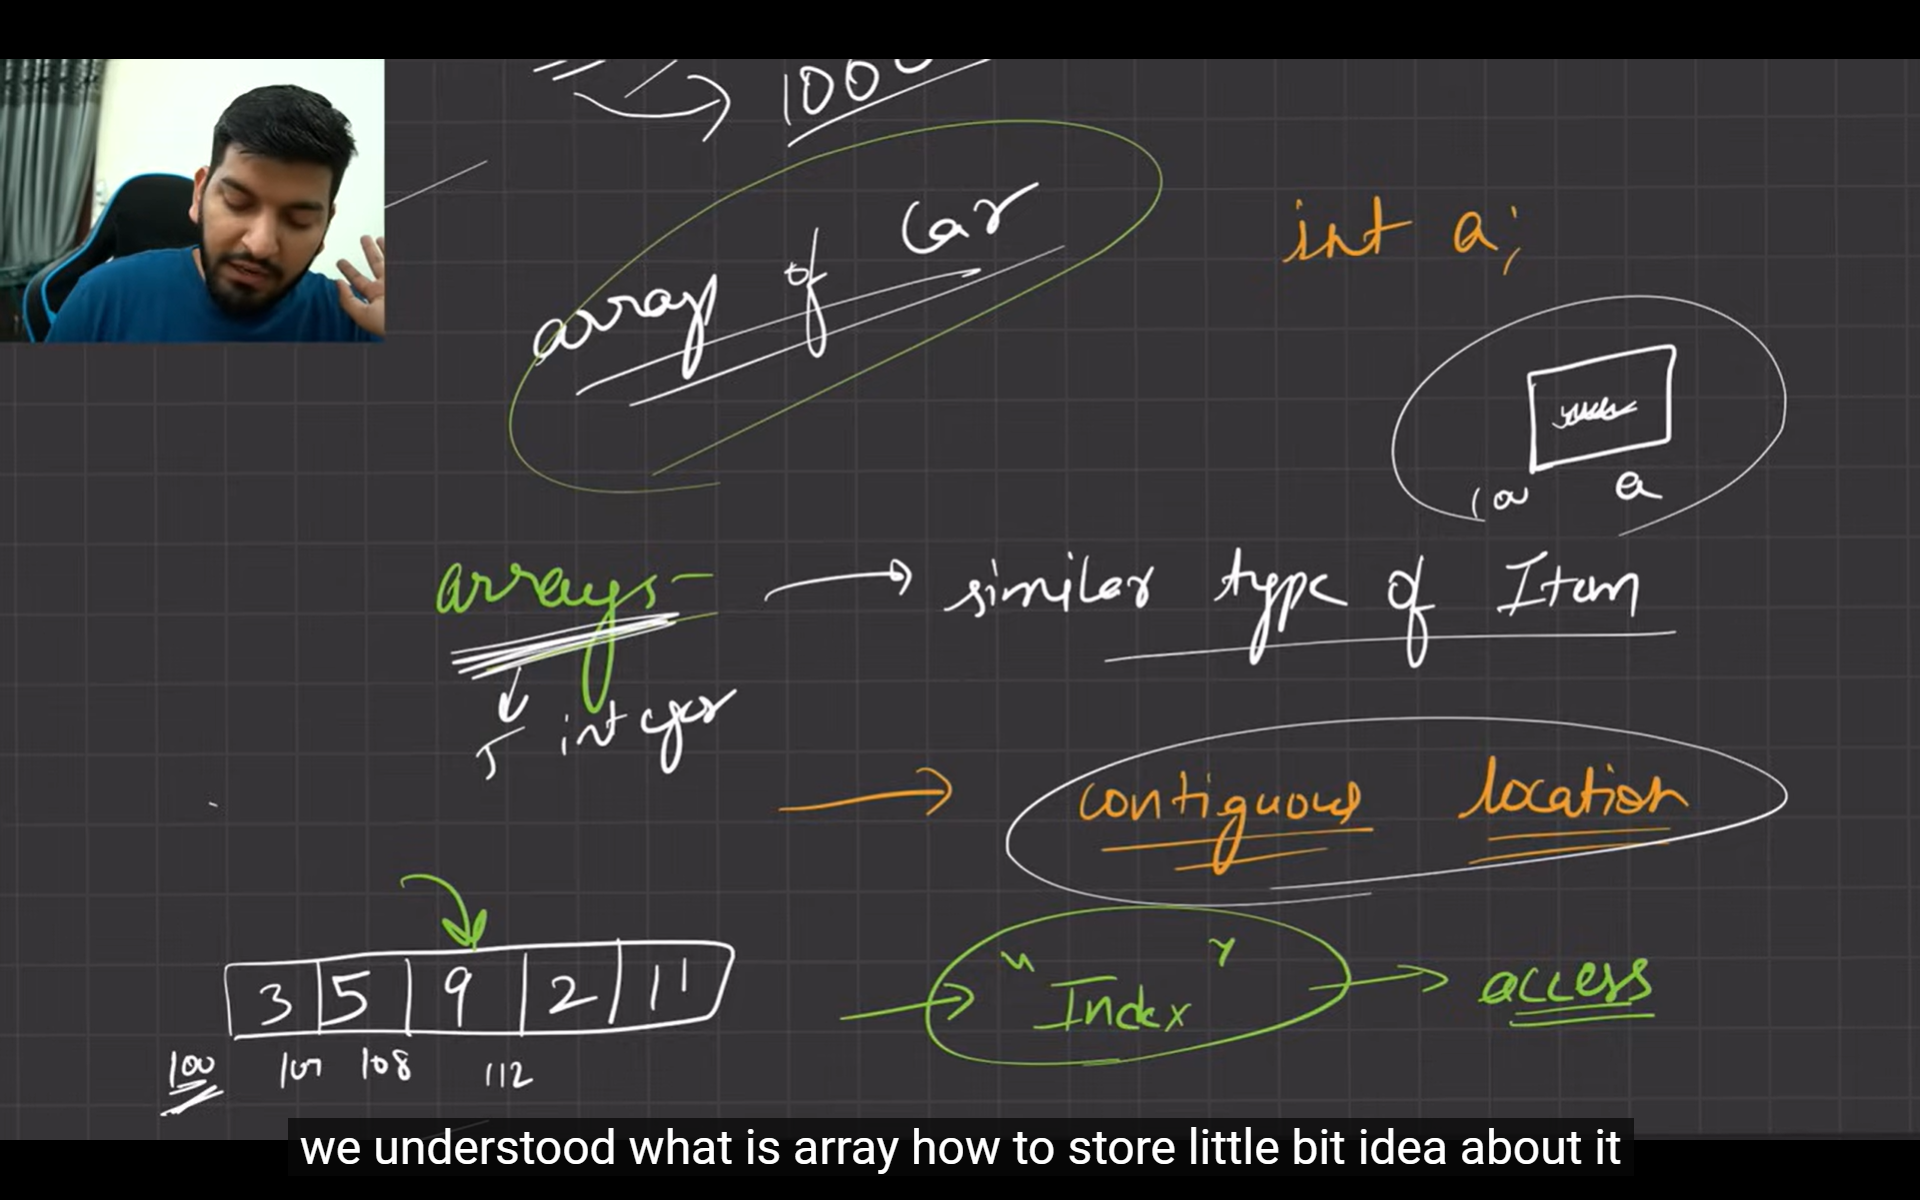 1000
array of Car
int a;
100 a
arrays - → similar type of Item
↓
5 integer
→ contiguous location
3 5 9 2 11
→ "Index" → access
100 104 108 112
we understood what is array how to store little bit idea about it